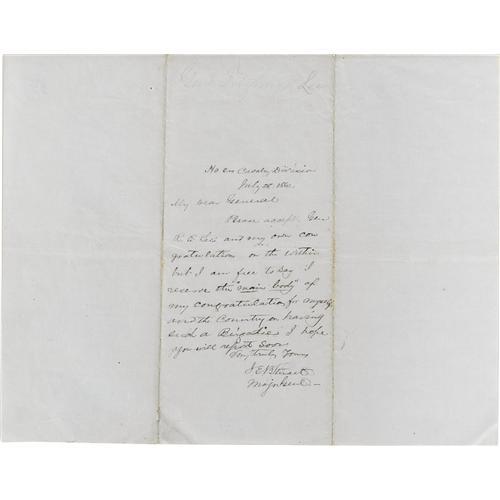 Genl Fitzhugh Lee
Hd Qrs Cavalry Division
July 28 1862
My Dear General
Please accept Gen
R E Lee and my own con
gratulation on the within
but I am free to say I
reserve the "main body" of
my congratulation for myself
and the Country on having
such a Brigadier I hope
you will report soon
Very truly Yours
J E B Stuart
Maj Genl –